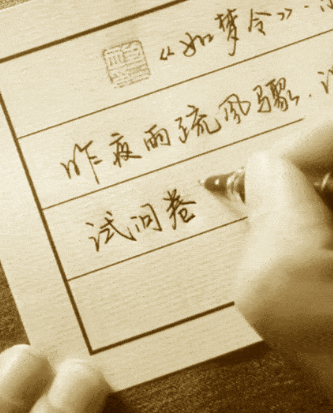 《如梦令》·
昨夜雨疏风骤.
试问卷